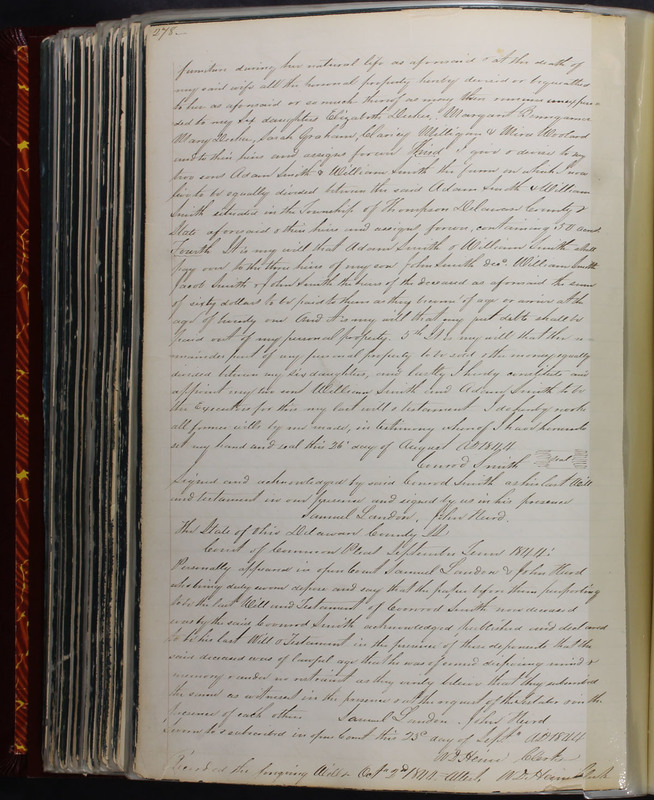 278.
furniture during her natural life as aforesaid & at the death of
my said wife all the personal property hereby devised or bequeathed
to her as aforesaid or so much thereof as may then remain unexpen
ded to my daughters Elizabeth Margaret
Mary Sarah Graham, Milligan &
and to their heirs and assigns forever Third I give & devise to my
two sons Adam Smith & William Smith the farm on which I now
live to be equally divided between the said Adam Smith & William
Smith situated in the Township of Thompson Delaware County &
State aforesaid & their heirs and assigns forever, containing 150 acres
Fourth It is my will that Adam Smith & William Smith shall
pay over to the three heirs of my son John Smith decd. William Smith
Jacob Smith & John Smith the heirs of the deceased as aforesaid the sum
of sixty dollars to be paid to them as they become of age or arrive at the
age of twenty one And it is my will that my just debts shall be
paid out of my personal property. 5th It is my will that the re-
mainder part of my personal property to be sold & the money equally
divided between my six daughters, and lastly I hereby constitute and
appoint my two sons William Smith and Adam Smith to be
the Executors for this my last will & testament I do hereby revoke
all former wills by me made, in testimony whereof I have hereunto
set my hand and seal this 26th day of August AD 1844
Conrod Smith seal
Signed and acknowledged by said Conrod Smith as his last Will
and testament in our presence and signed by us in his presence
Samuel Landon, John Hurd.
The State of Ohio Delaware County SS
Court of Common Pleas September Term 1844:
Personally appeared in open Court Samuel Landon & John Hurd
who being duly sworn depose and say that the paper before them purporting
to be the last Will and Testament of Conrod Smith now deceased
was by the said Conrod Smith acknowledged published and declared
to be his last Will & Testament in the presence of these deponents that the
said deceased was of lawful age that he was of sound disposing mind &
memory & under no restraint as they verily believe that they subscribed
the same as witnesses in the presence & at the request of the testator & in the
presence of each other Samuel Landon. John Hurd
Sworn to & subscribed in open Court this 25th day of Septr. AD 1844
Clerk
Recorded the foregoing Will Octr 2d Attest Clerk